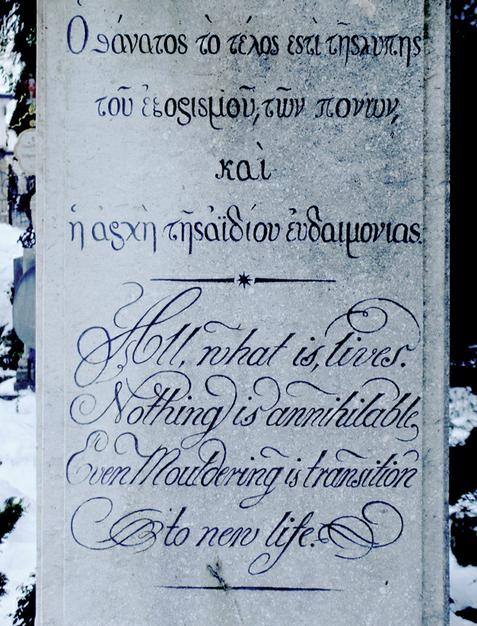 Ὁ θάνατος τὸ τέλος ἐστὶ τῆς λύπης
τοῦ ἐξορισμοῦ, τῶν πονων,
καὶ
ἡ αρχὴ τῆς αϊδίου ἐυδαιμονιας.
All, what is, lives.
Nothing is annihilable,
Even Mouldering is transition
to new life.